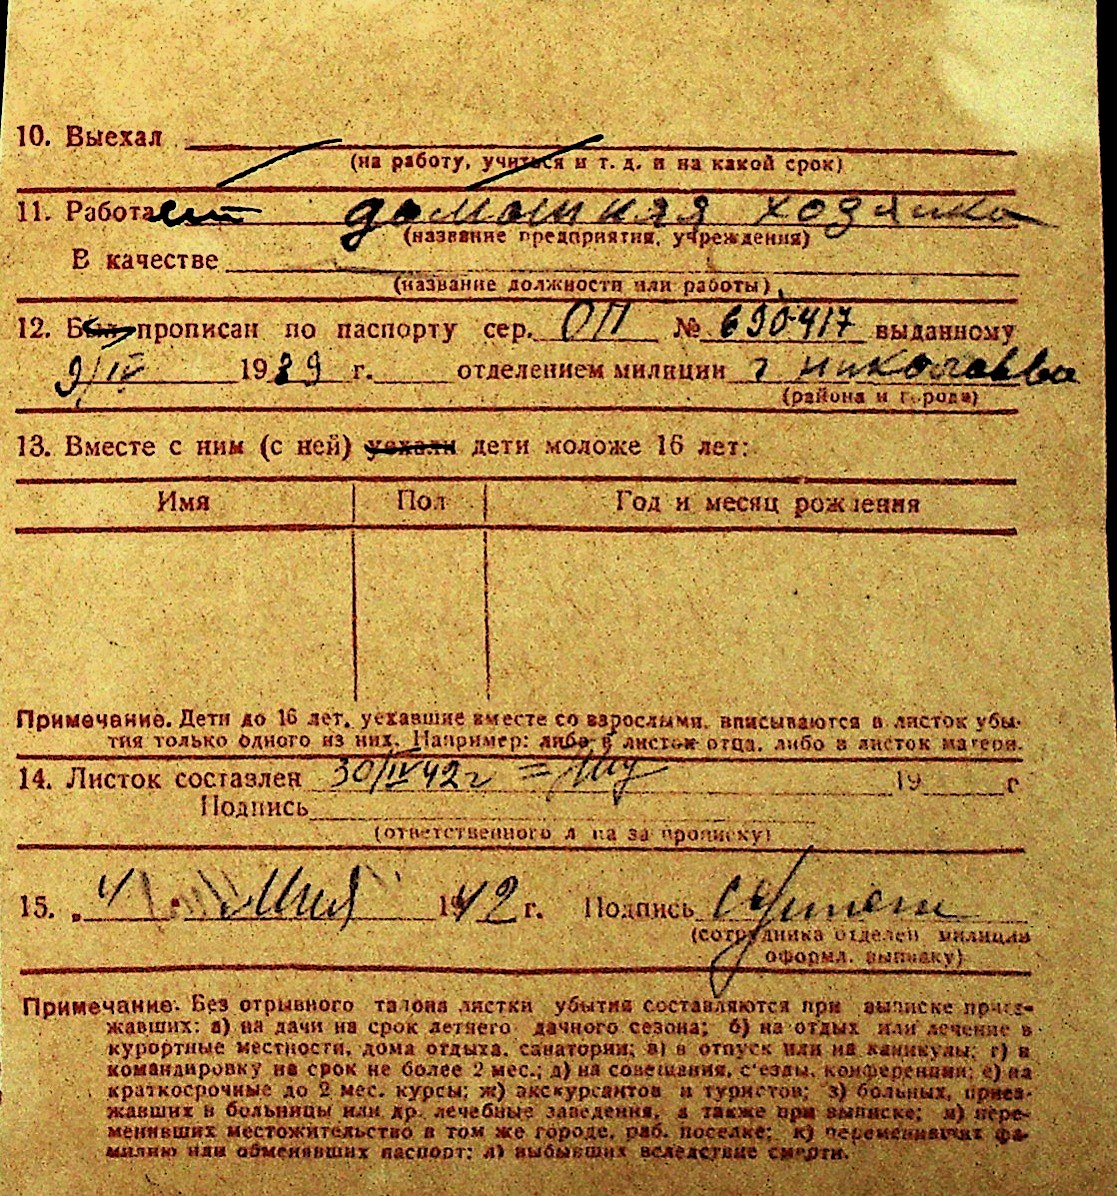 10. Выехал
(на работу, учиться и т. д. и на какой срок)
11. Работает домашняя хозяйка
(название предприятия, учреждения)
В качестве
(название должности или работы)
12. Был прописан по паспорту сер. ОП № 690417 выданному
9/IV 1939 г. отделением милиции г Николаева
(района и города)
13. Вместе с ним (с ней) уехали дети моложе 16 лет:
Имя Пол Год и месяц рождения
Примечание. Дети до 16 лет, уехавшие вместе со взрослыми, вписываются в листок убы-
тия только одного из них. Например: либо в листок отца, либо в листок матери.
14. Листок составлен 30/IV 42 г 19 г
Подпись
(ответственного лица за прописку)
15. „4" Мая 1942 г. Подпись
(сотрудника отделен. милиции
оформл. выписку)
Примечание. Без отрывного талона листки убытия составляются при выписке приез-
жавших: а) на дачи на срок летнего дачного сезона; б) на отдых или лечение в
курортные местности, дома отдыха, санатории; в) в отпуск или на каникулы; г) в
командировку на срок не более 2 мес.; д) на совещания, с'езды, конференции; е) на
краткосрочные до 2 мес. курсы; ж) экскурсантов и туристов; з) больных, приез-
жавших в больницы или др. лечебные заведения, а также при выписке; и) пере-
менивших местожительство в том же городе, раб. поселке; к) переменивших фа-
милию или обменявших паспорт; л) выбывших вследствие смерти.